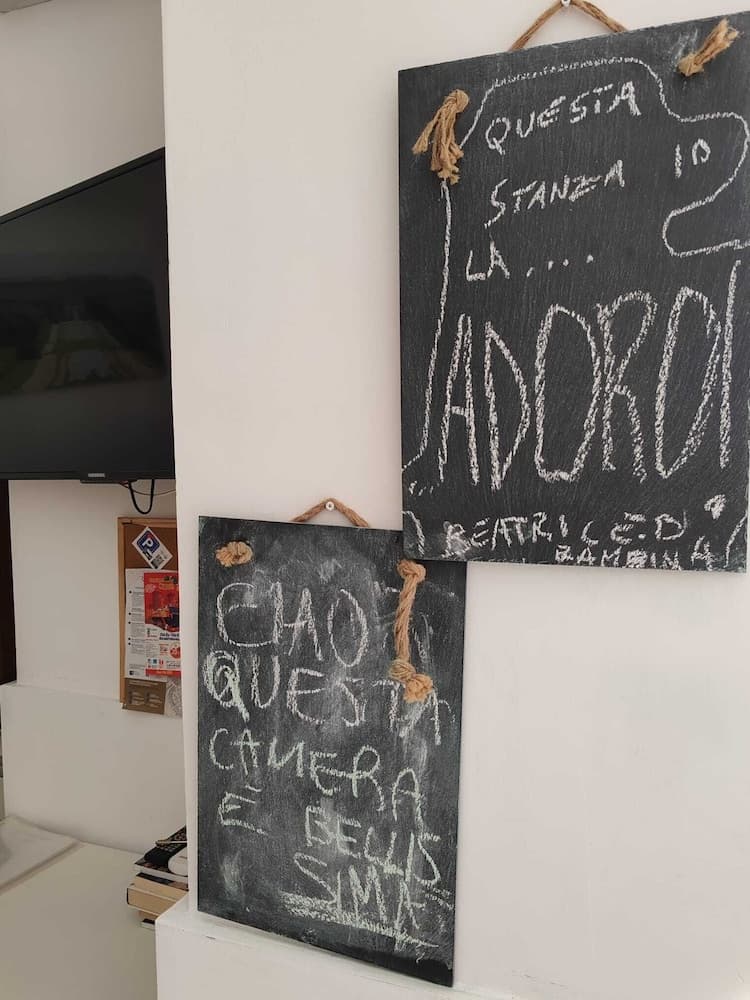 QUESTA
STANZA IO
LA....
ADORO!
BEATRICE.D
BAMBINA
CIAO
QUESTA
CAMERA
È BELLIS
SIMA